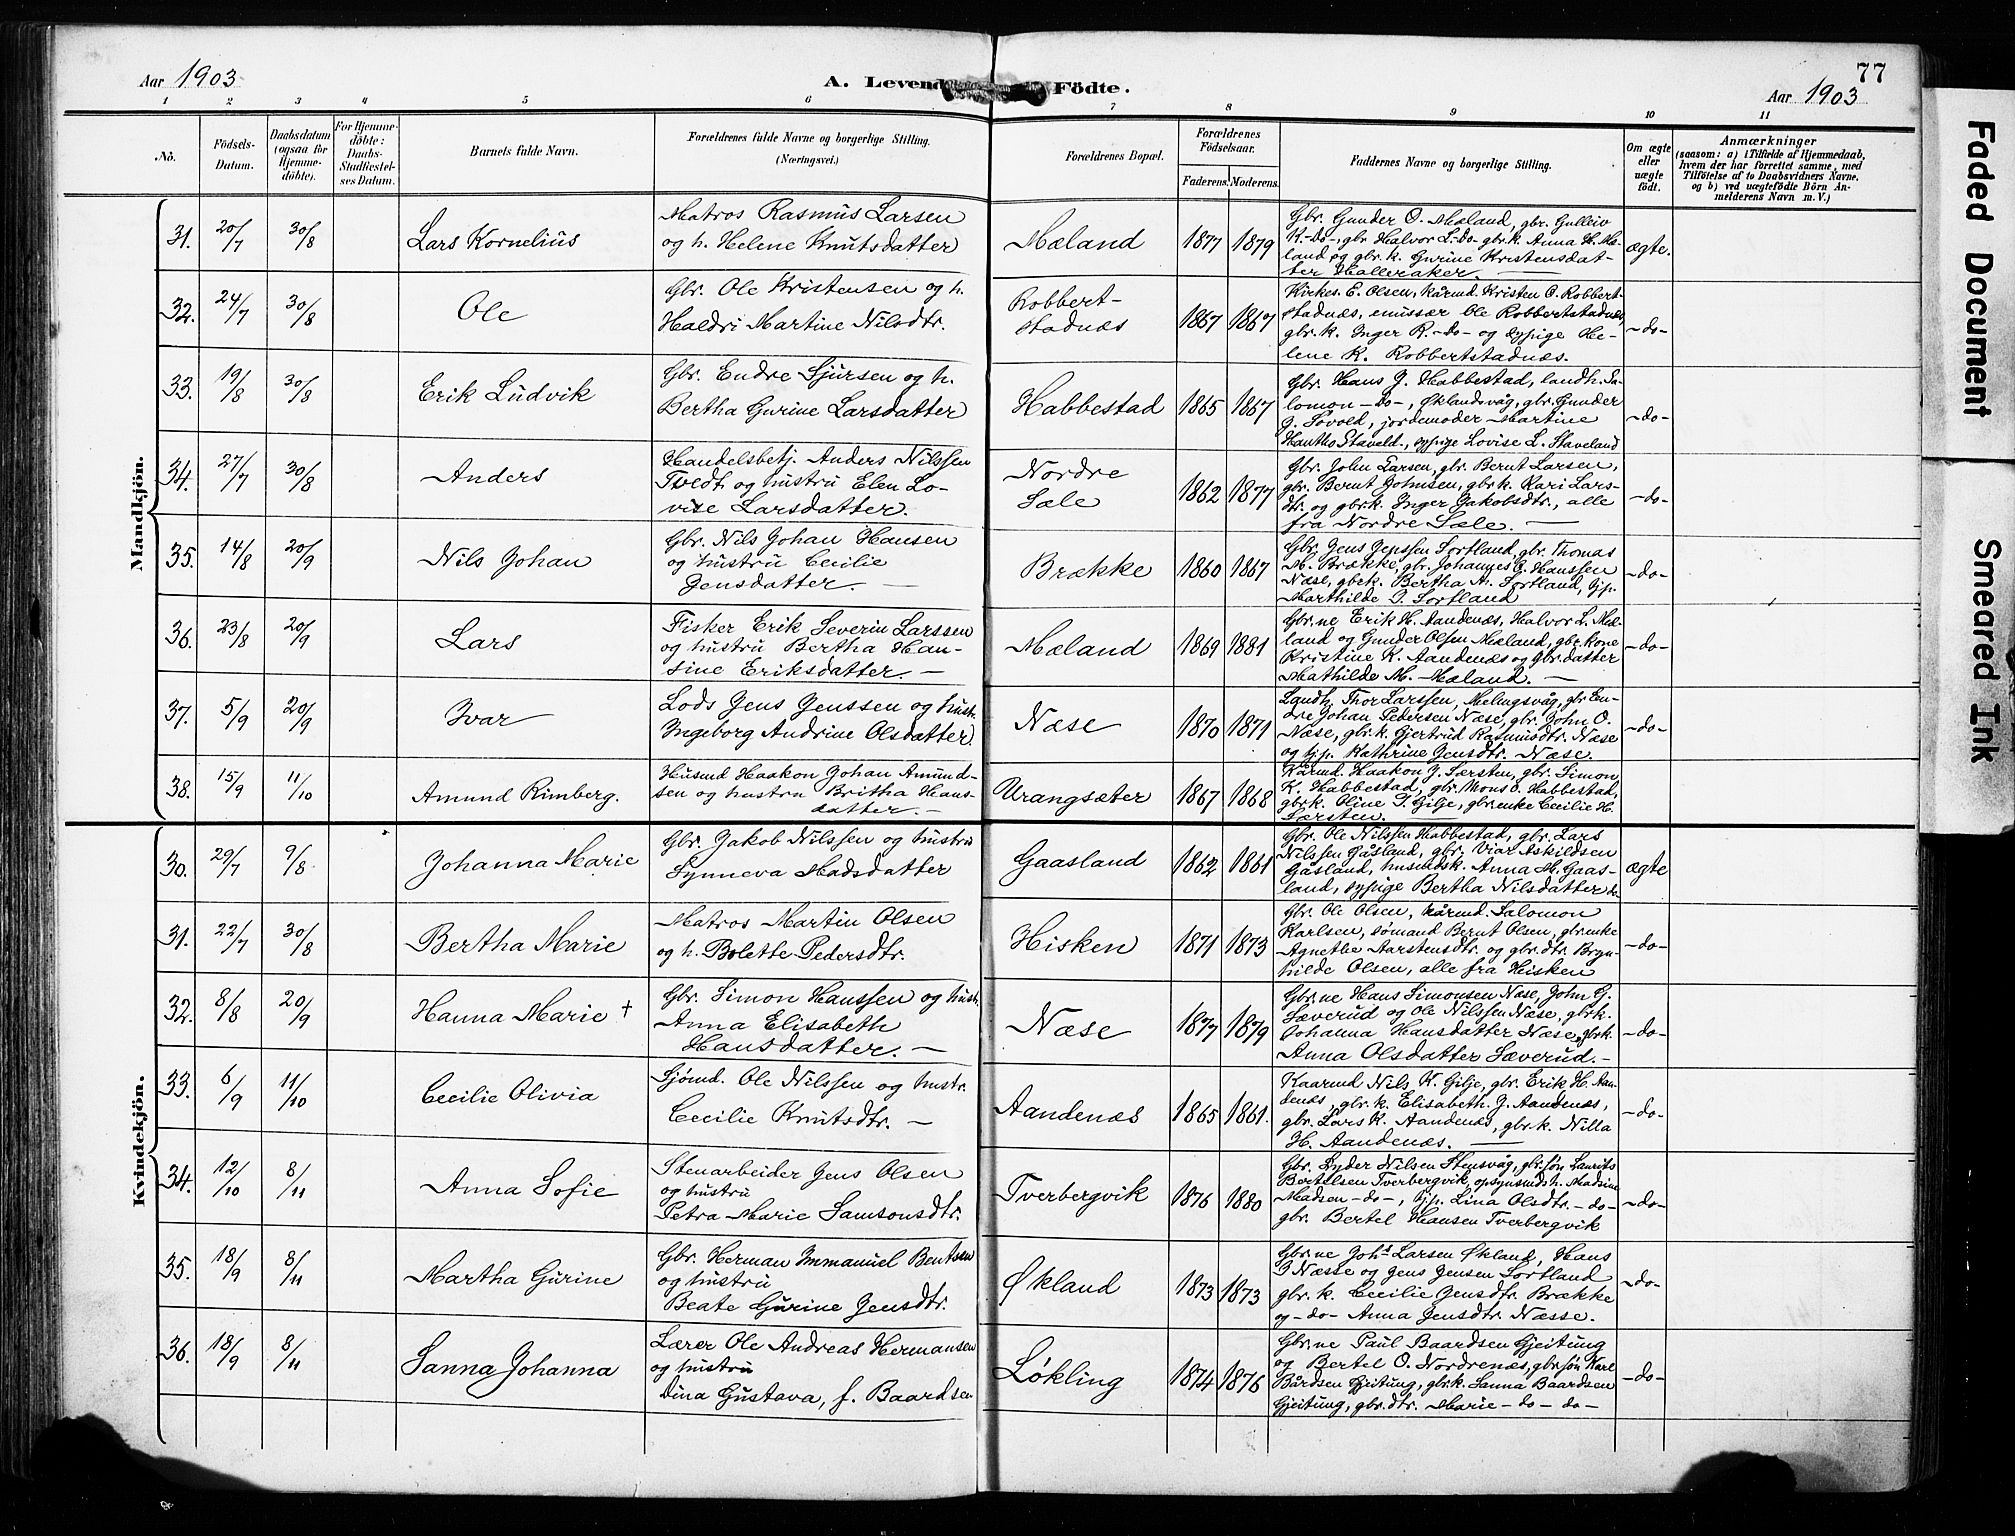 Aar 1903
A. Levend Födte.
77
Aar 1903
1 2 3 4 5 6 7 8 9 10 11
No.
Födsels-Datum.
Daabsdatum (ogsaa for Hjemme-döbte).
For Hjemme-döbte: Daabs-Stadfæstel-ses Datum.
Barnets fulde Navn.
Forældrenes fulde Navne og borgerlige Stilling. (Næringsvei.)
Forældrenes Bopæl.
Forældrenes Födselsaar.
Faderens. Moderens.
Faddernes Navne og borgerlige Stilling.
Om ægte eller uægte födt.
Anmærkninger
(saasom: a) i Tilfælde af Hjemmedaab, hvem der har forrettet samme, med Tilföielse af to Daabsvidners Navne, og b) ved uægtefödte Börn An-melderens Navn m. V.)
Mandkjön.
31. 20/7 30/8 Lars Kornelius
Matros Rasmus Larsen
og h. Helene Knutsdatter
Mæland 1877 1879
Gbr. Gunder O. Mæland, gbr. Gulleiv
K. -Do-, gbr. Halvor L. -Do- gbr.k. Anna H. Mæ-
land og gbr. k. Gurine Kristensdat-
ter Halleraker.
ægte.
32. 24/7 30/8 Ole
Gbr. Ole Kristensen og h.
Haldri Martine Nilsdtr.
Robbert-
stadnæs 1867 1867
Kirkes. E. Olsen, kårmd. Kristen O. Robbert-
stadnæs, emissær Ole Robbertstadnæs,
gbr. k. Inger K. -do- og sypige He-
lene K. Robbertstadnæs.
-do-
33. 19/8 30/8 Erik Ludvik
Gbr. Endre Sjursen og h.
Bertha Gurine Larsdatter
Habbestad 1865 1867
Gbr. Hans J. Habbestad, landh. Sa-
lomon -do-, Øklandsvåg, gbr. Gunder
G. Sovold, jordemoder Martine
sypige Lovise L. Staveland
-do-
34. 27/7 30/8 Anders
Handelsbetj. Anders Nilssen
Tvedt og hustru Elen Lo-
vise Larsdatter.
Nordre
Sæle 1862 1877
Gbr. John Larsen, gbr. Bernt Larsen,
gbr. Bernt Johnsen, gbr.k. Kari Lars-
dtr. og gbr.k. Inger Jakobsdtr., alle
fra Nordre Sæle.
-do-
35. 14/8 20/9 Nils Johan
Gbr. Nils Johan Hansen
og hustru Cecilie
Jensdatter.
Brække 1860 1867
Gbr. Jens Jenssen Sortland, gbr. Thomas
M. Brække, gbr. Johannes Hanssen
Næse, gbr.k. Bertha A. Sortland, tjp.
Marthilde J. Sortland
-do-
36. 23/8 20/9 Lars
Fisker Erik Severin Larssen
og hustru Bertha Han-
sine Eriksdatter.
Mæland 1869 1881
Gbr.ne Erik H. Aandenæs, Halvor L. Mæ-
land og Gunder Olsen Mæland, gbr. kone
Kristine K. Aandenæs og gbr. datter
Mathilde M. Mæland.
-do-
37. 5/9 20/9 Ivar
Lods Jens Jenssen og hust.
Ingeborg Andrine Olsdatter
Næse 1870 1871
Landh. Thor Larssen, Melingsvåg, gbr. En-
dre Johan Pedersen Næse, gbr. John O.
Næse, gbr. k. Gjertrud Rasmusdtr. Næse
og tjp. Kathrine Jensdtr. Næse.
-do-
38. 15/9 11/10 Amund Rimberg.
Husmd Haakon Johan Amund-
sen og hustru Britha Hans-
datter.
Urangsæter 1867 1868
Kårmd. Haakon J. Særsten, gbr. Simon
K. Habbestad, gbr. Mons O. Habbestad,
gbr.k. Oline T. Gilje, gbr. enke Cecilie H.
Særsten.
Kvindekjön.
30. 29/7 9/8 Johanna Marie
Gbr. Jakob Nilssen og hustru
Synneva Madsdatter
Gaasland 1862 1861
Gbr. Ole Nilssen Habbestad, gbr. Lars
Nilssen Gåsland, gbr. Viar Askildsen
Gåsland, husmdsk. Anna M. Gaas-
land, sypige Bertha Nilsdatter do
ægte
31. 22/7 30/8 Bertha Marie
Matros Martin Olsen
og h. Bolette Pedersdtr.
Hisken 1871 1873
Gbr. Ole Olsen, kårmd. Salomon
Karlsen, sømand Bernt Olsen, gbr. enke
Agnethe Aarstensdtr. og gbr. dtr. Bryn-
hilde Olsen, alle fra Hisken
-do-
32. 8/8 20/9 Hanna Marie +
Gbr. Simon Hanssen og hust.
Anna Elisabeth
Hansdatter.
Næse 1877 1879
Gbr.ne Hans Simonsen Næse, John G.
Sæverud og Ole Nilssen Næse, gbr.k.
Johanna Hansdatter Næse, gbr.k.
Anna Olsdatter Sæverud.
-do-
33. 6/9 11/10 Cecilie Olivia
Sjømd. Ole Nilssen og hustr.
Cecilie Knutsdtr.
Aandenæs 1865 1861.
Kaarmd Nils K. Gilje, gbr. Erik H. Aan-
denæs, gbr. k. Elisabeth J. Aandenæs,
gbr. Lars K. Aandenæs, gbr. k. Nilla
H. Aandenæs.
-do-
34. 12/10 8/11 Anna Sofie
Stenarbeider Jens Olsen
og hustru
Petra Marie Samsonsdtr.
Tverbergvik 1876 1880
Gbr. Lyder Nilsen Stensvåg, gbr. søn Laurits
Bertelsen Tverbergvik, opsynsmds h. Madsine
Madsen -do-, tjp. Lina Olsdtr. -do-
gbr. Bertel Hansen Tverbergvik
-do-
35. 18/9 8/11 Martha Gurine
Gbr. Herman Immanuel Bentsen
og hustru
Beate Gurine Jensdtr.
Økland 1873 1873
Gbr.ne Johs Larsen Økland, Hans
J Næsse og Jens Jensen Sortland
gbr. k. Cecilie Jensdtr. Brække
og -do- Anna Jensdtr. Næsse.
-do-
36. 18/9 8/11 Sanna Johanna
Lærer Ole Andreas Hermansen
og hustru
Dina Gustava, f. Baardsen
Løkling 1874 1876
Gbr.ne Paul Baardsen Gjeitung
og Bertel O. Nordrenæs, gbr. søn Karl
Bårdsen Gjeitung, gbr.k. Sanna Baardsen
Gjeitung, gbr. dtr. Marie -do- do-
-do-
Faded Document
Smeared Ink